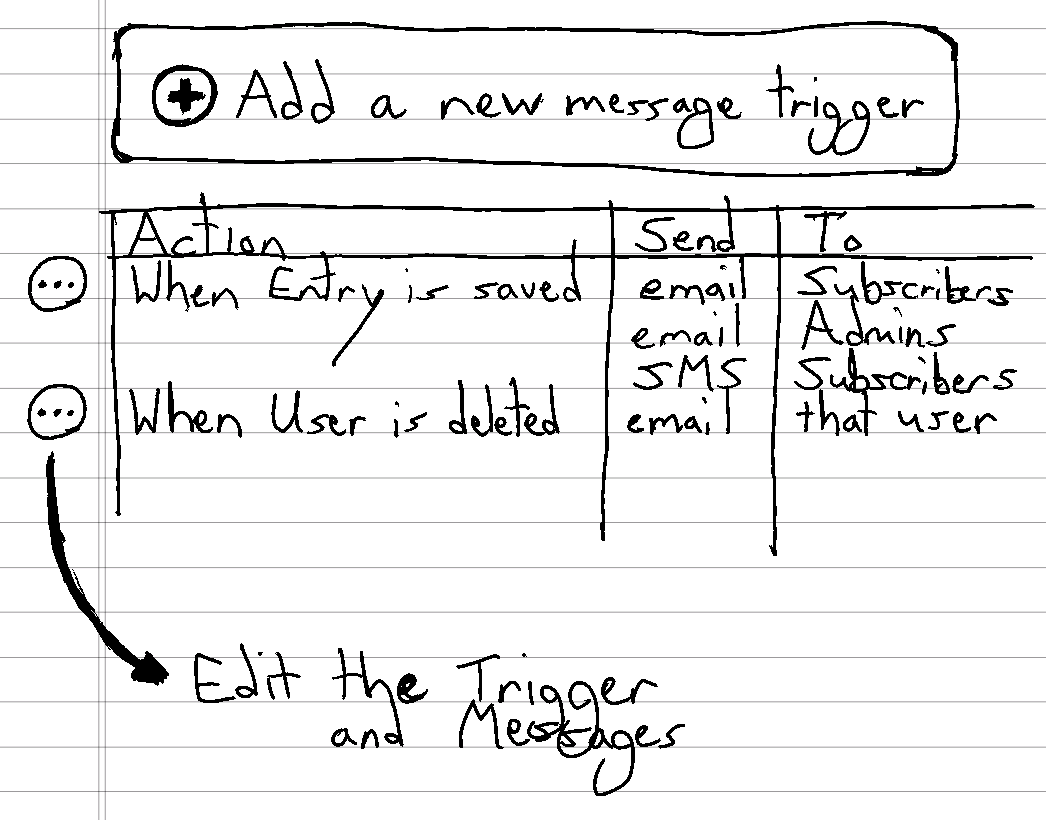 Add a new message trigger
Action Send To
When Entry is saved email Subscribers
email Admins
SMS Subscribers
When User is deleted email that user
Edit the Trigger
and Messages